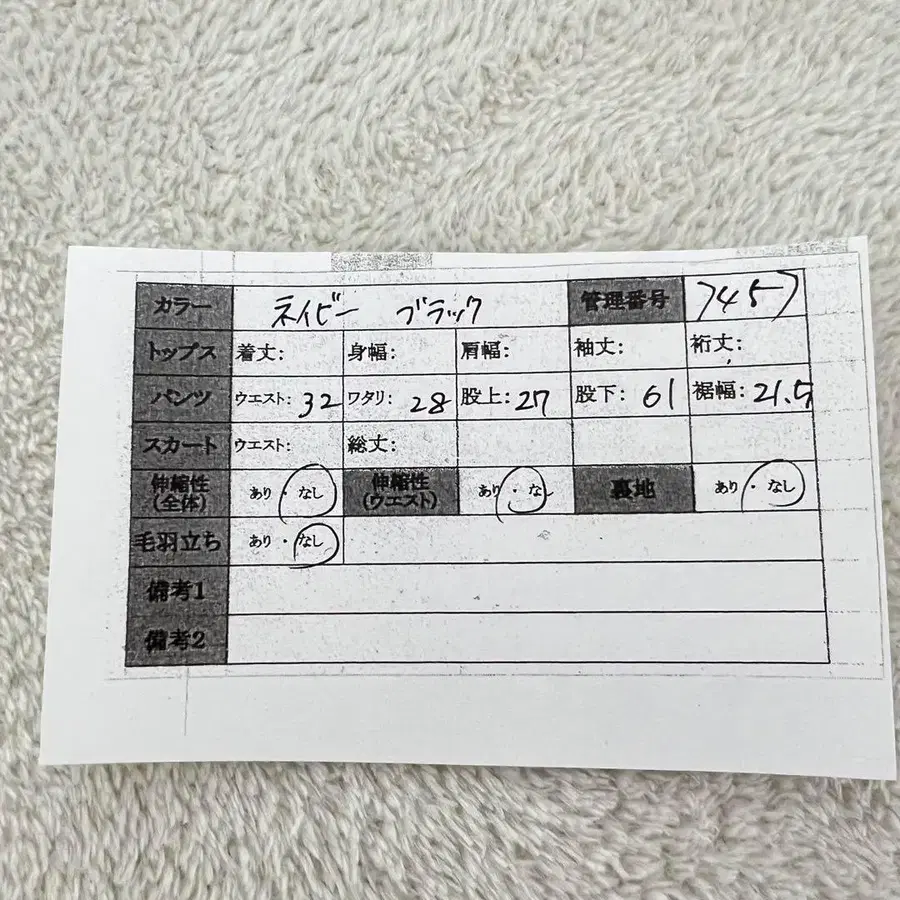 カラー ネイビー ブラック 管理番号 7457
トップス 着丈: 身幅: 肩幅: 袖丈: 裄丈:
パンツ ウエスト: 32 ワタリ: 28 股上: 27 股下: 61 裾幅: 21.5
スカート ウエスト: 総丈:
伸縮性(全体) あり・なし 伸縮性(ウエスト) あり・なし 裏地 あり・なし
毛羽立ち あり・なし
備考1
備考2